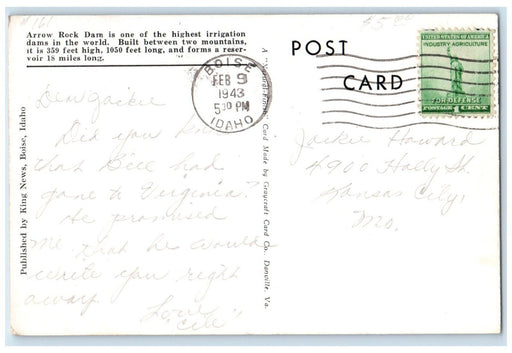 N161
$5.00
Arrow Rock Dam is one of the highest irrigation
dams in the world. Built between two mountains,
it is 359 feet high, 1050 feet long, and forms a reser-
voir 18 miles long.
POST
CARD
BOISE
FEB 9
1943
5 30 PM
IDAHO
UNITED STATES OF AMERICA
INDUSTRY AGRICULTURE
FOR DEFENSE
POSTAGE 1 CENT
Dear Jackie
Did you know
that Bill had
gone to Virginia?
He promised
me that he would
write you right
away.
Love
Jackie Howard
4900 Holly St.
Kansas City,
Mo.
Published by King News, Boise, Idaho
Card Made by Graycraft Card Co., Danville, Va.